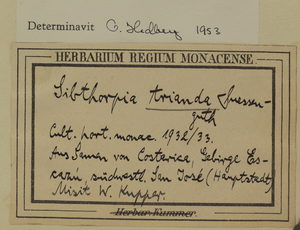 Determinavit O. Hedberg 1953
HERBARIUM REGIUM MONACENSE
Sibthorpia trianda Suessen-
guth
Cult. hort. monac. 1932/33.
Aus Samen von Costarica, Gebirge Es-
cazú, südwestl. San José (Hauptstadt)
Misit W. Kupper.
Herbar. Kummer.